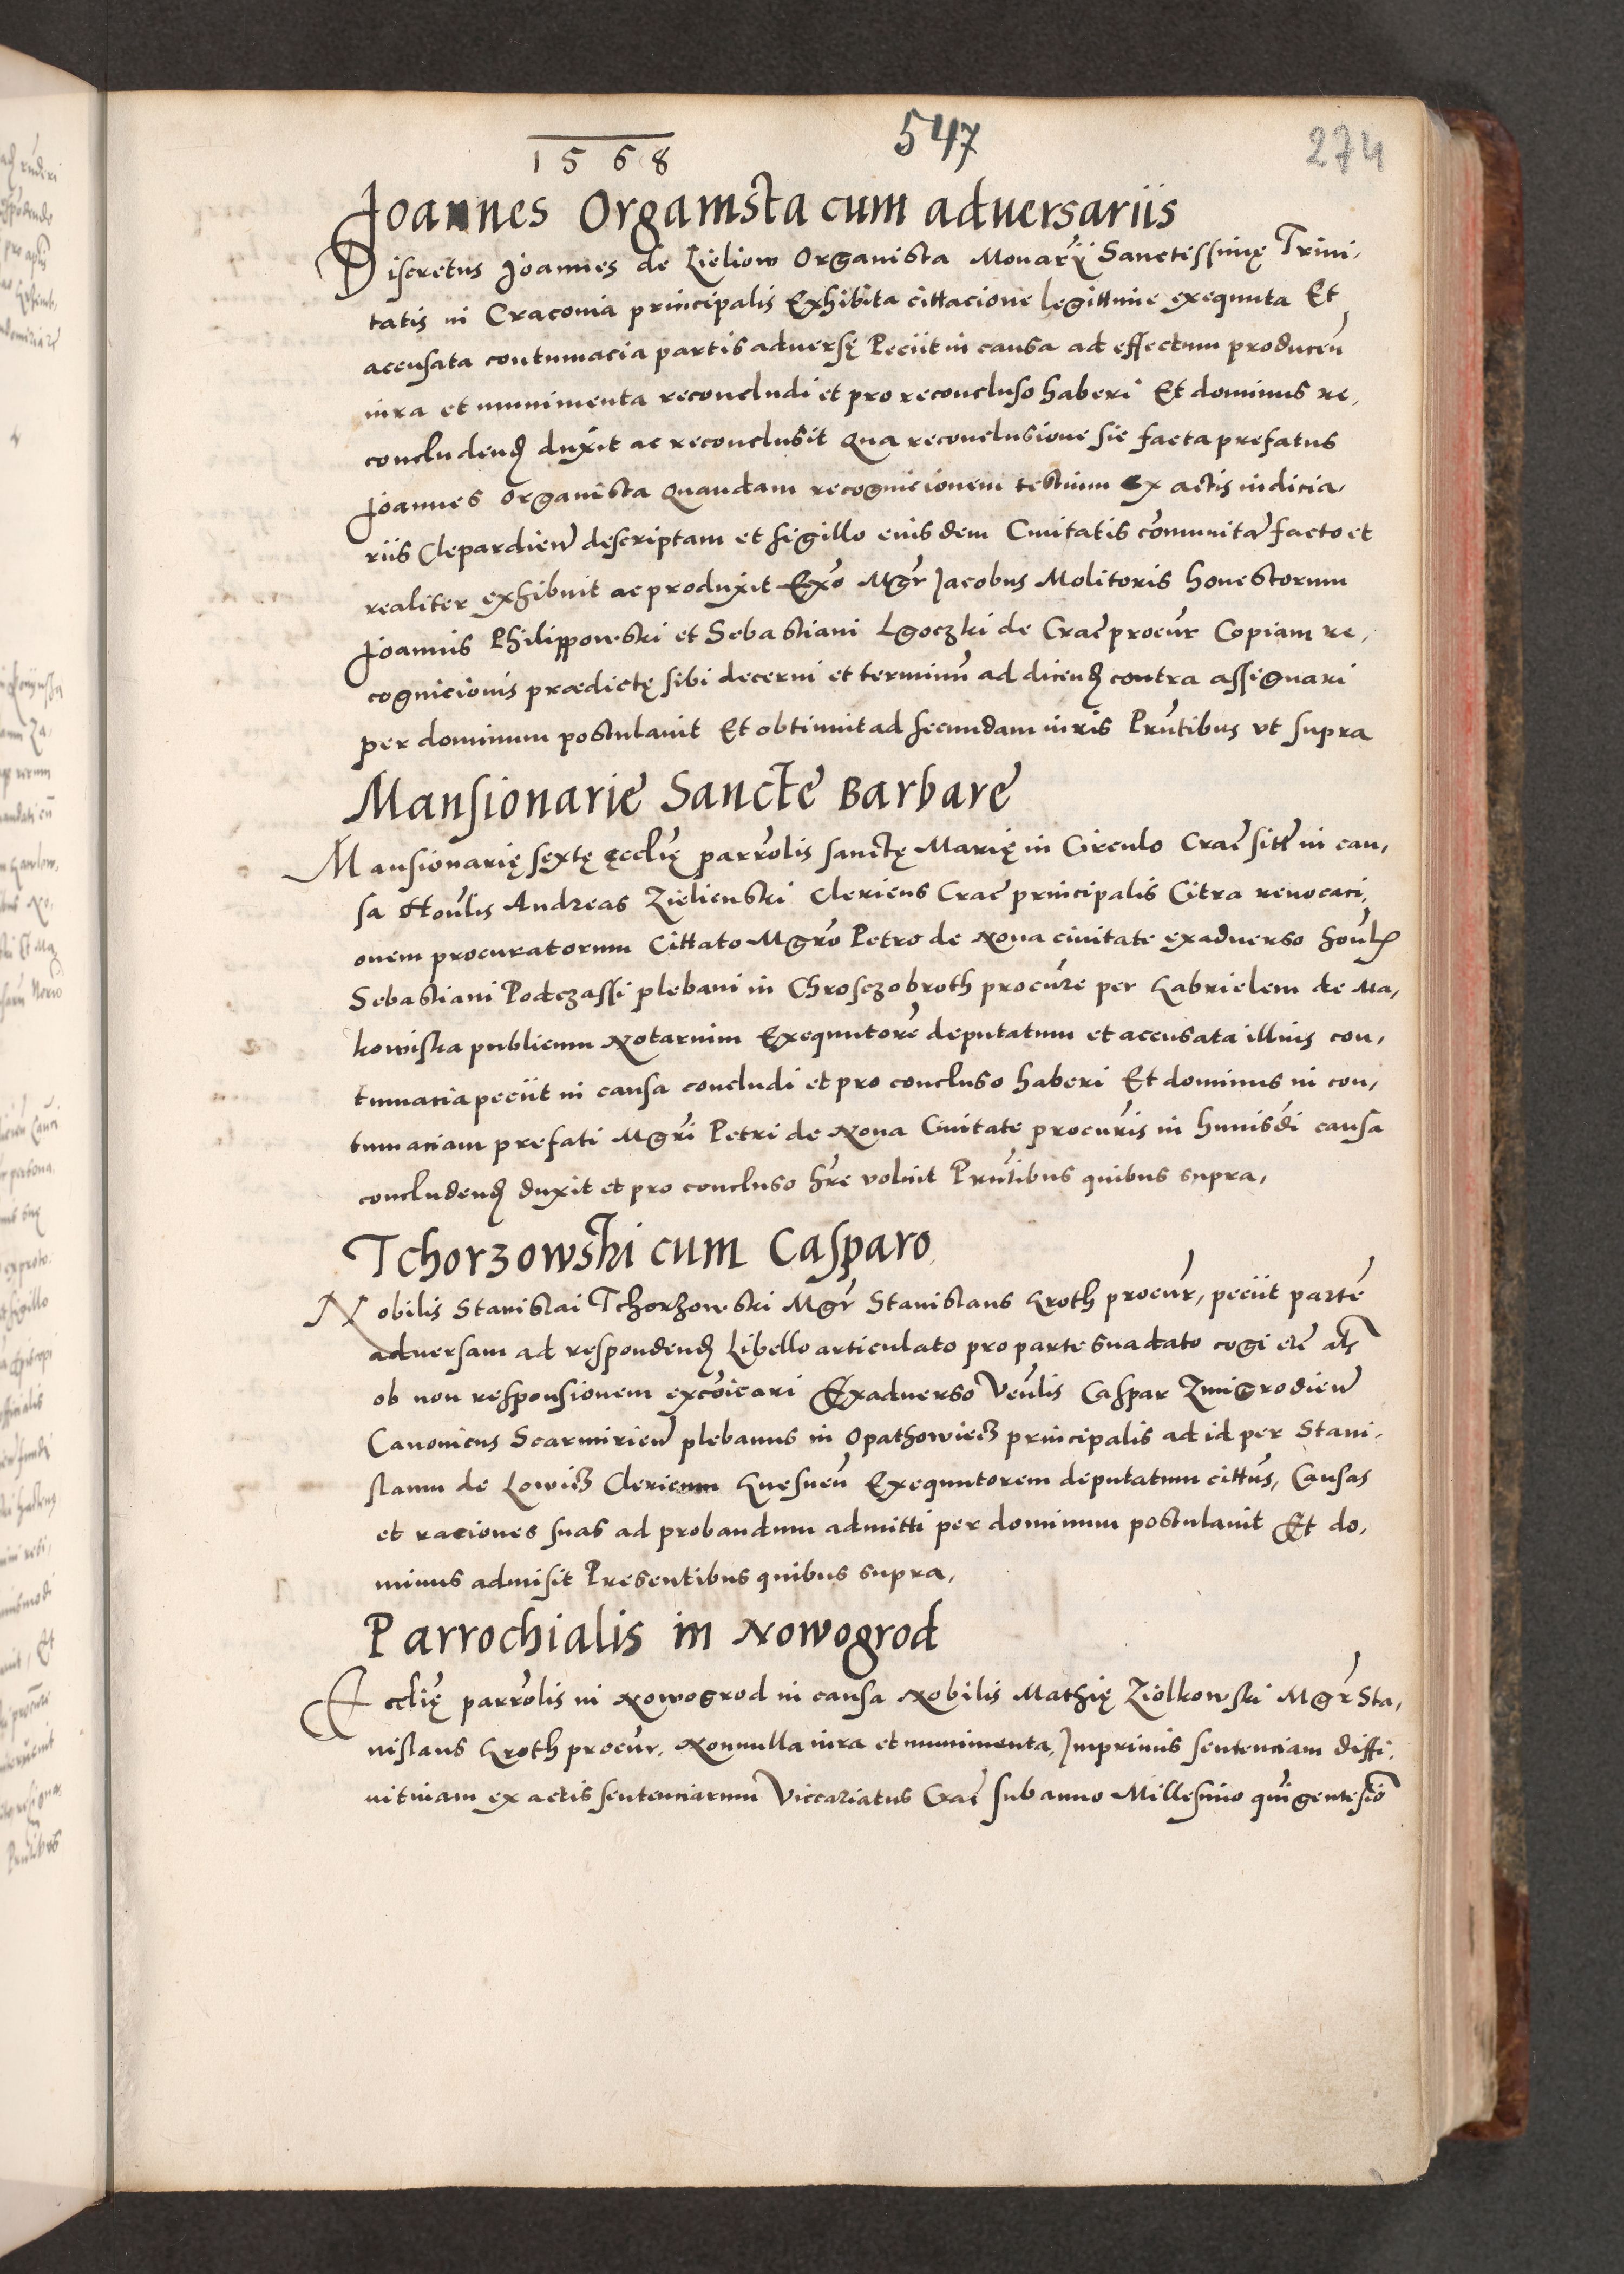 1568
547
274
Joannes Organista cum adversariis
Discretus Joannes de Lieliow Organista Monarÿ Sanctissimę Trini,
tatis in Craconia principalis Exhibita cittacione legittime exequuta Et
accusata contumacia partis adversę Peciit in causa ad effectum producen
iura et munimenta reconcludi et pro reconcluso haberi Et dominus re,
concludend duxit ac reconclusit Qua reconclusione sic facta prefatus
Joannes Organista Quandam recognicionem testium Ex actis iudicia,
riis Clepardien descriptam et sigillo eiusdem Civitatis comunitam facto et
realiter exhibuit ac produxit Exo Mgr Jacobus Molitoris honestorum
Joannis Philippowski et Sebastiani Lgoczki de Crac procur Copiam re,
cognicionis prædictę sibi decerni et terminum ad dicend contra assignari
per dominum postulavit Et obtinuit ad secundam iuris Pruntibus vt supra
Mansionarie Sancte Barbare
Mansionarię sextę ecclię parrolis sanctę Marię in Circulo Crac sitę in cau,
sa Honlis Andreas Zielienski Clericus Crac principalis Citra revocaci,
onem procuratorum Cittato Mgro Petro de Nova civitate exadverso honlis
Sebastiani Podczassi plebani in Chrosczobroth procure per Gabrielem de Ma,
kowiska publicum Notarium Exequutore deputatum et accusata illius con,
tumacia peciit in causa concludi et pro concluso haberi Et dominus in con,
tumaciam prefati Mgri Petri de Nova Civitate procuris in huiusdi causa
concludend duxit et pro concluso hre voluit Pruntibus quibus supra,
Tchorzowski cum Casparo
Nobilis Stanislai Tchorzowski Mgr Stanislaus Groth procur, peciit parte
adversam ad respondend Libello articulato pro parte sua dato cogi etc als
ob non responsionem excoicari Exadverso Venlis Caspar Zmigrodien
Canonicus Scarmirien plebanus in Opathowiecz principalis ad id per Stani,
slaum de Lowicz Clericum Gnesnen Exequutorem deputatum cittus, Causas
et raciones suas ad probandum admitti per dominum postulavit Et do,
minus admisit Presentibus quibus supra,
Parrochialis in Nowogrod
Ecclię parrolis in Nowogrod in causa Nobilis Mathię Ziolkowski Mgr Sta,
nislaus Groth procur, Nonnulla iura et munimenta, Imprimis sentenciam diffi,
nitivam ex actis sentenciarum Viccariatus Crac sub anno Millesimo quingentesio